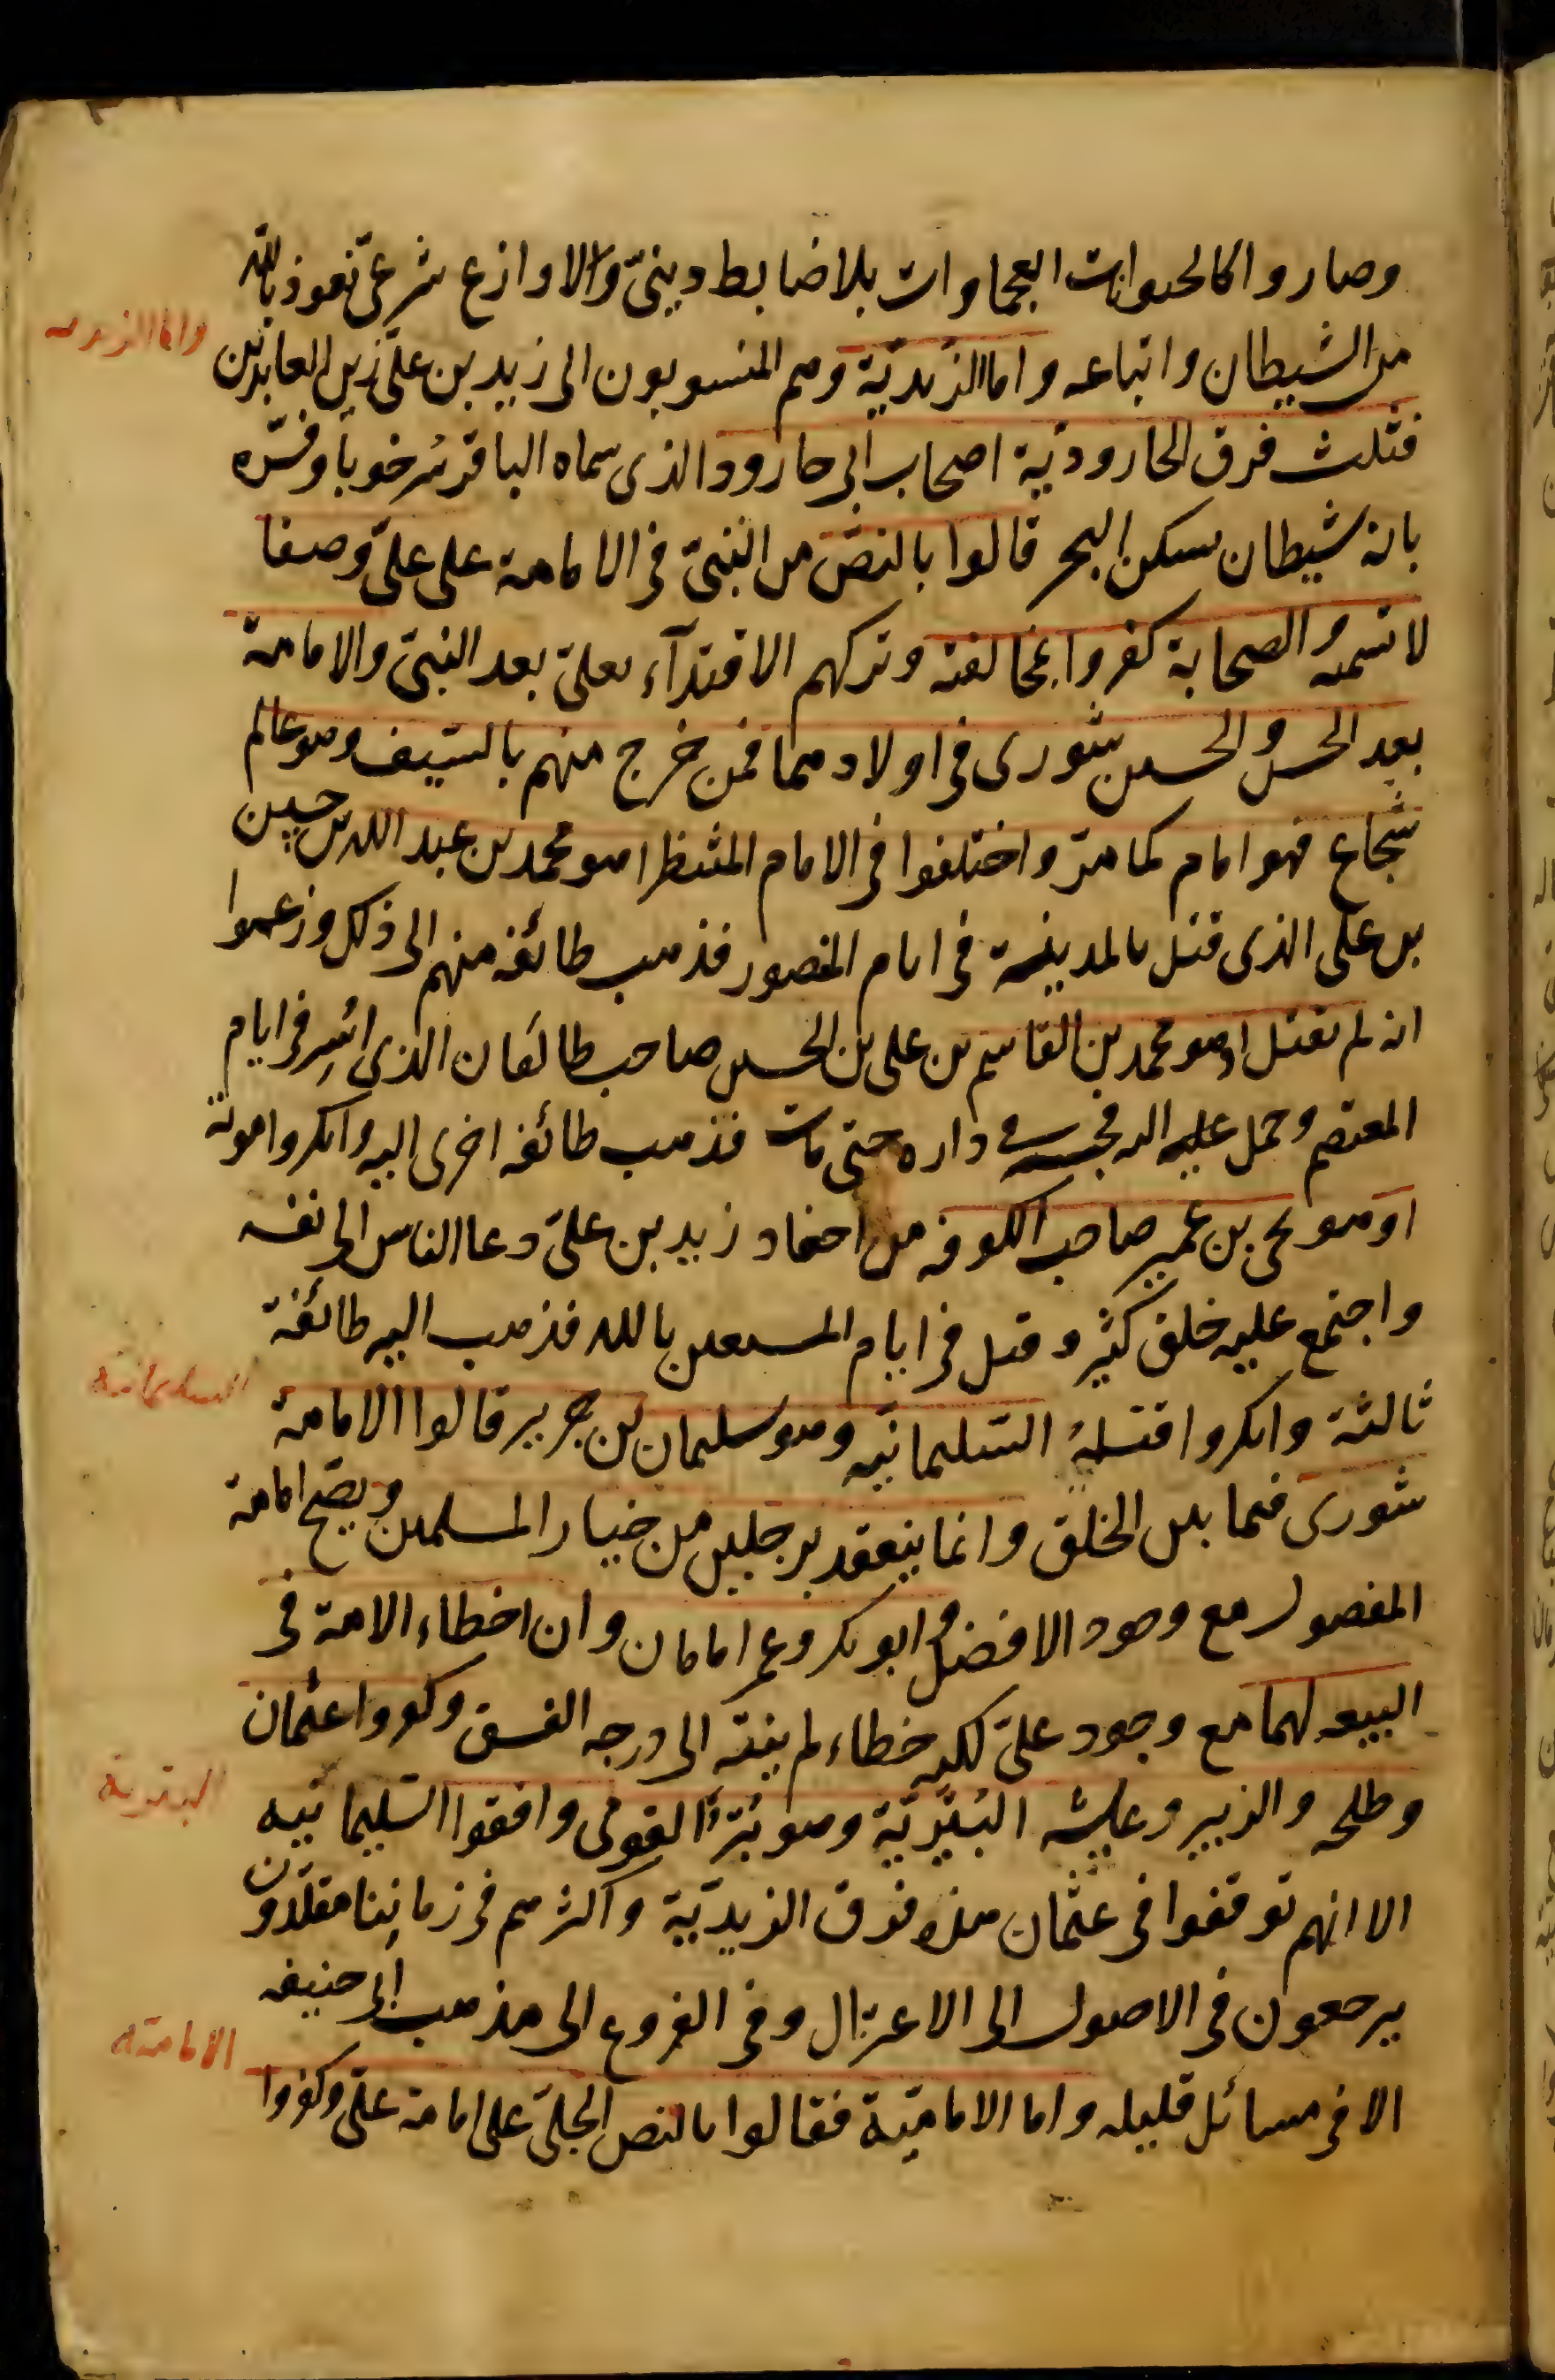 وصاروا كالحيوانات العجماوات بلا ضابط دينيّ ولا وازع شرعيّ نعوذ بالله
من الشيطان واتباعه واما الزيديّة وهم المنسوبون الى زيد بن علي زين العابدين
واما الزيديه
فثلث فرق الجاروديّة اصحاب ابى جارود الذى سماه الباقر سُرخوبا وفسّره
بانه شيطان يسكن البحر قالوا بالنصّ من النبيّ فى الامامة على عليّ وصفا
لا تسمية والصحابة كفروا بمخالفته وتركهم الاقتدآء بعليّ بعد النبيّ والامامة
بعد الحسن والحسين شورى فى اولادهما فمن خرج منهم بالسّيف وهو عالم
شجاع فهو امام كما مرّ واختلفوا فى الامام المنتظر اهو محمد بن عبد الله بن حسين
بن على الذى قتل بالمدينة فى ايام المنصور فذهب طائفة منهم الى ذلك وزعموا
انه لم يقتل او هو محمد بن القاسم بن على بن الحسين صاحب طالقان الذى اُسِر فى ايام
المعتصم وحمل عليه اليه فحبسه فى داره حتى مات فذهب طائفة اخرى اليه وانكروا موته
او هو يحيى بن عمير صاحب الكوفة من احفاد زيد بن عليّ دعا الناس الى نفسه
واجتمع عليه خلق كثير وقتل فى ايام المستعين بالله فذهب اليه طائفة
ثالثة وانكروا قتله السّليمانيّه وهو سليمان بن جرير قالوا الامامة
السليمانيه
شورى فيما بين الخلق وانما ينعقد برجلين من خيار المسلمين ويصحّ امامة
المفضول مع وجود الافضل وابو بكر وعمر امامان وان اخطاء الامة فى
البيعه لهما مع وجود عليّ لكنه خطاء لم ينته الى درجه الفسق وكفروا عثمان
وطلحه والزبير وعايشه البُتَيْريّة وهو بُتَرٌ القومى وافقوا السّليمانيه
البتريه
الا انهم توقفوا فى عثمان هذه فرق الزيديّة واكثرهم فى زماننا مقلّدون
يرجعون فى الاصول الى الاعتزال وفى الفروع الى مذهب ابى حنيفه
الا فى مسائل قليله واما الاماميّة فقالوا بالنص الجليّ على امامة عليّ وكفروا
الاماميّه